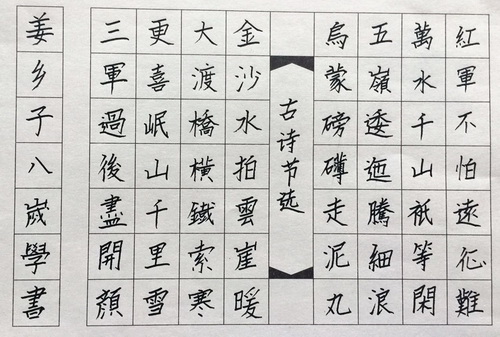 紅軍不怕遠征難
萬水千山祇等閑
五嶺逶迤騰細浪
烏蒙磅礴走泥丸
古诗节选
金沙水拍雲崖暖
大渡橋橫鐵索寒
更喜岷山千里雪
三軍過後盡開顏
姜乡子八歲學書